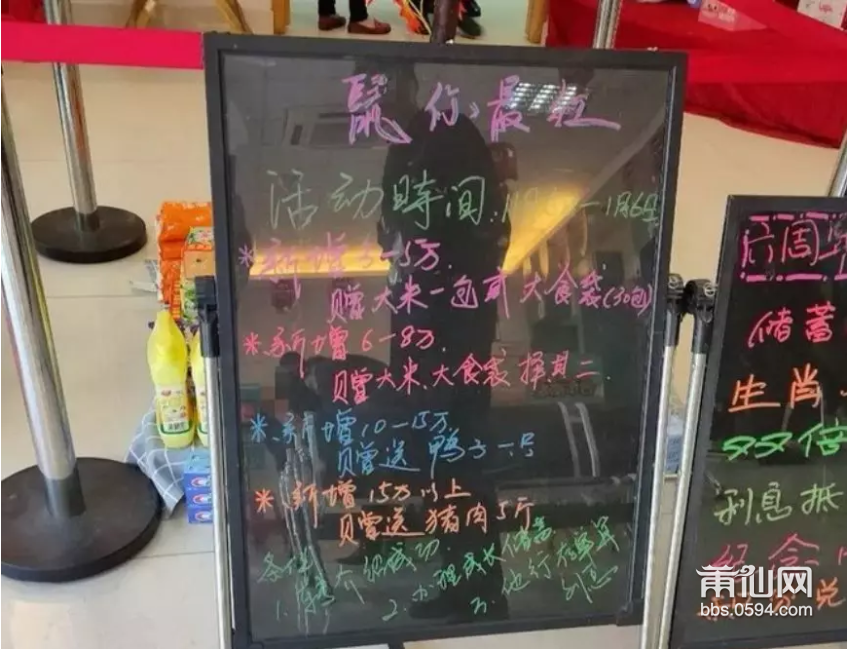 鼠你最粒
活动時间:
*新增3-5万.
赠大米一包或大食袋(30包)
*新增6-8万.
赠大米、大食袋择其二.
*新增10-15万
赠送鸭子一只
*新增15万以上
赠送猪肉5斤
条件
1.
2.办理成长储蓄
3.他行
周年
储蓄
生肖
双倍
利息抵
纪念
兑
莆仙网
bbs.0594.com